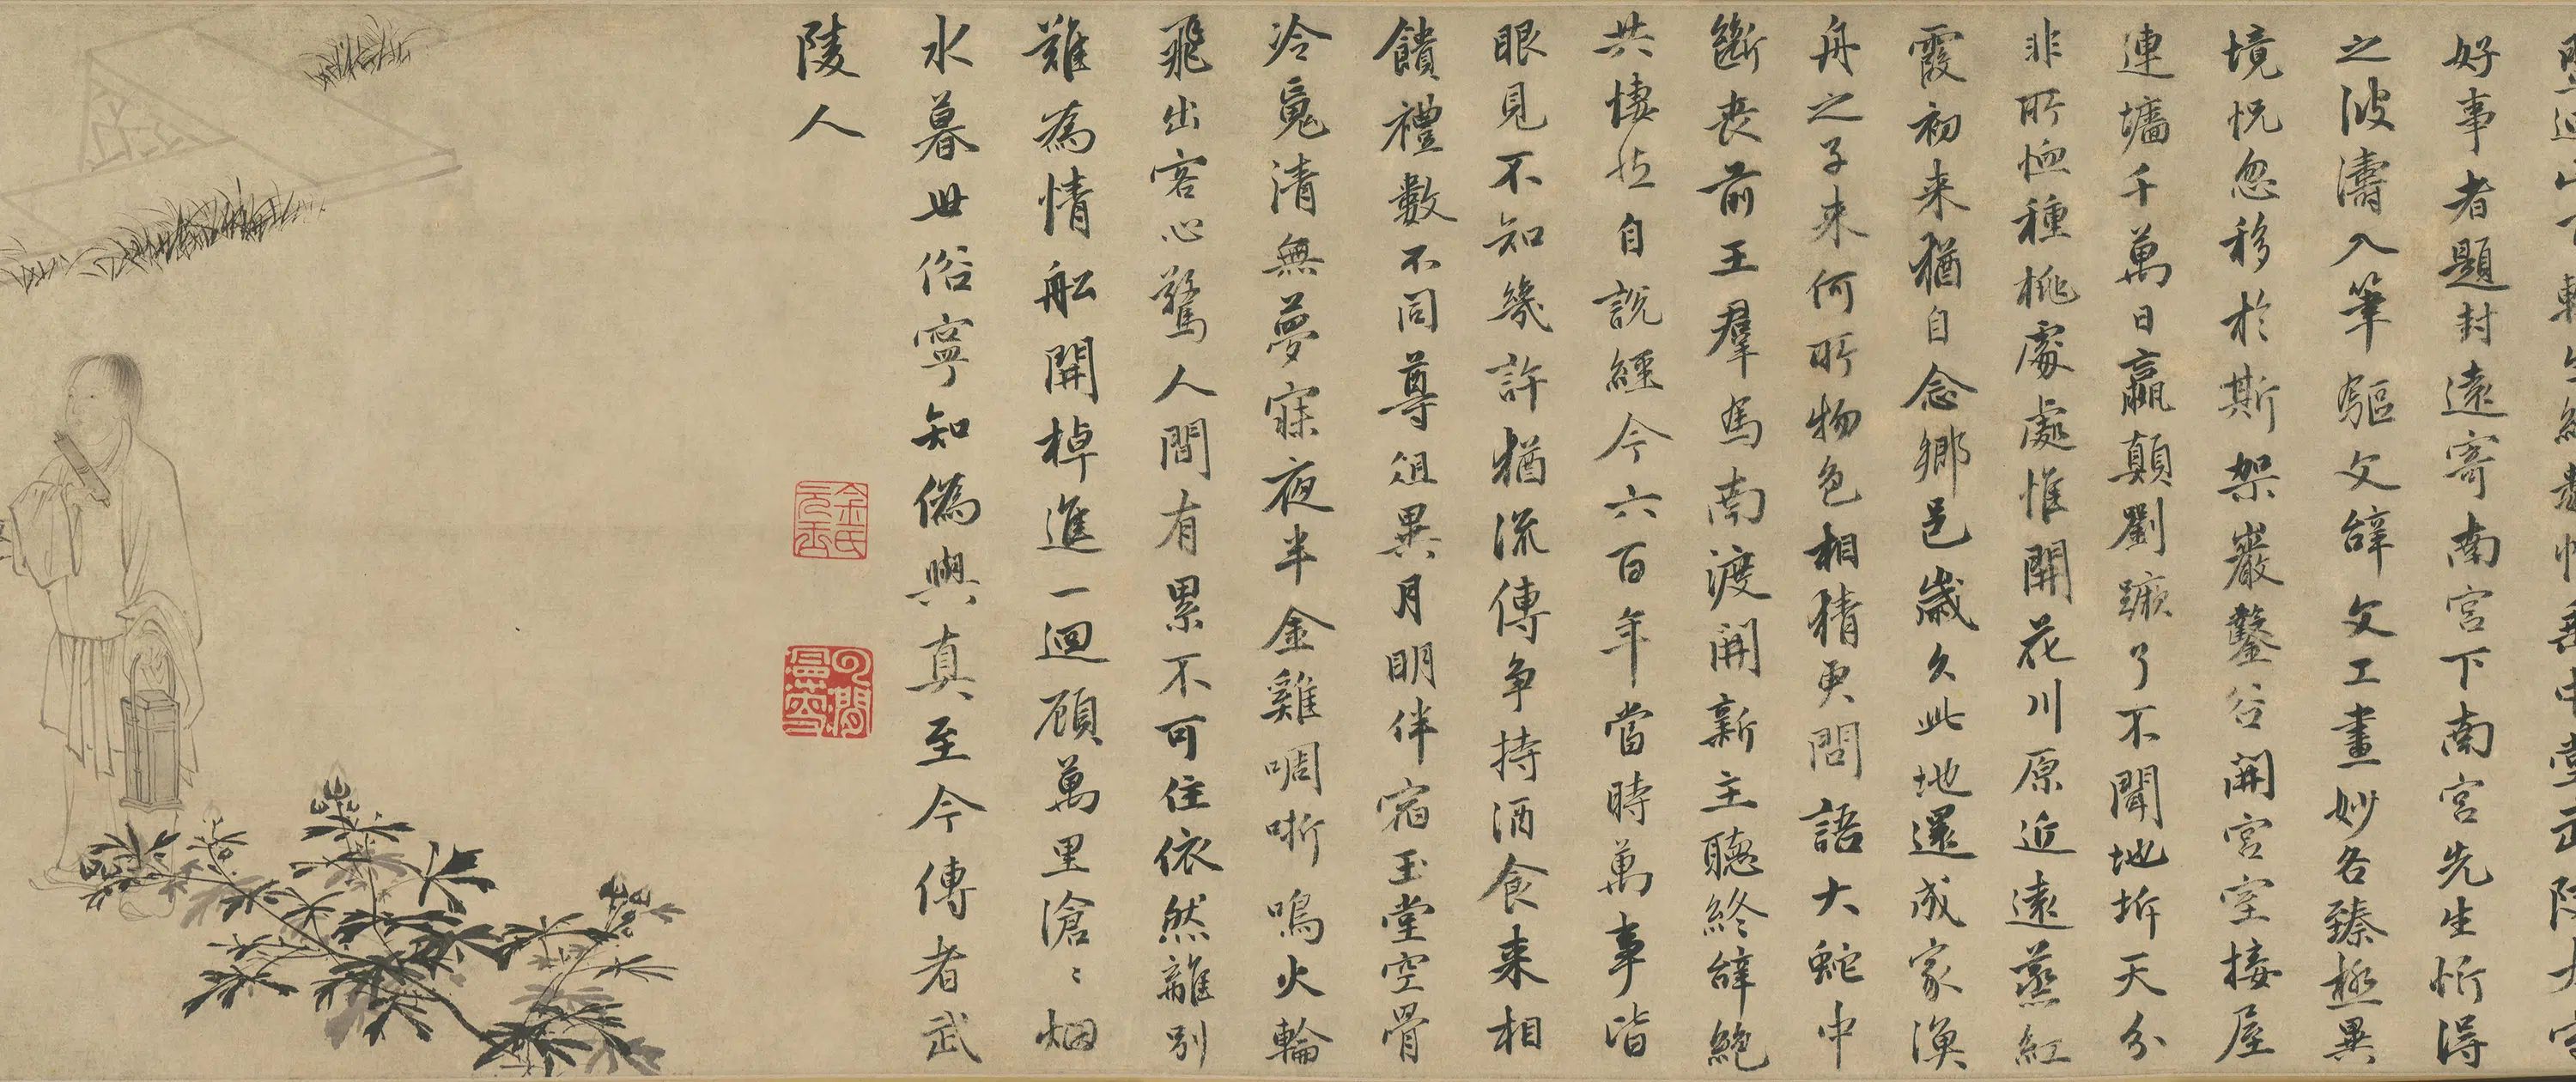 好事者題封遠寄南宮下南宮先生忻得
之波濤入筆驅文辭文工畫妙各臻極異
境怳忽移於斯架巖鑿谷開宮室接屋
連墻千萬日嬴顛劉蹶了不聞地坼天分
非所恤種桃處處惟開花川原近遠蒸紅
霞初来猶自念鄉邑歲久此地還成家漁
舟之子来何所物色相猜更問語大蛇中
斷喪前王羣馬南渡開新主聽終辭絕
共悽然自說經今六百年當時萬事皆
眼見不知幾許猶流傳争持酒食来相
饋禮數不同尊俎異月明伴宿玉堂空骨
冷魂清無夢寐夜半金雞啁哳鳴火輪
飛出客心驚人間有累不可住依然離別
難為情船開棹進一迴顧萬里滄〻烟
水暮世俗寧知偽與真至今傳者武
陵人
金氏元玉